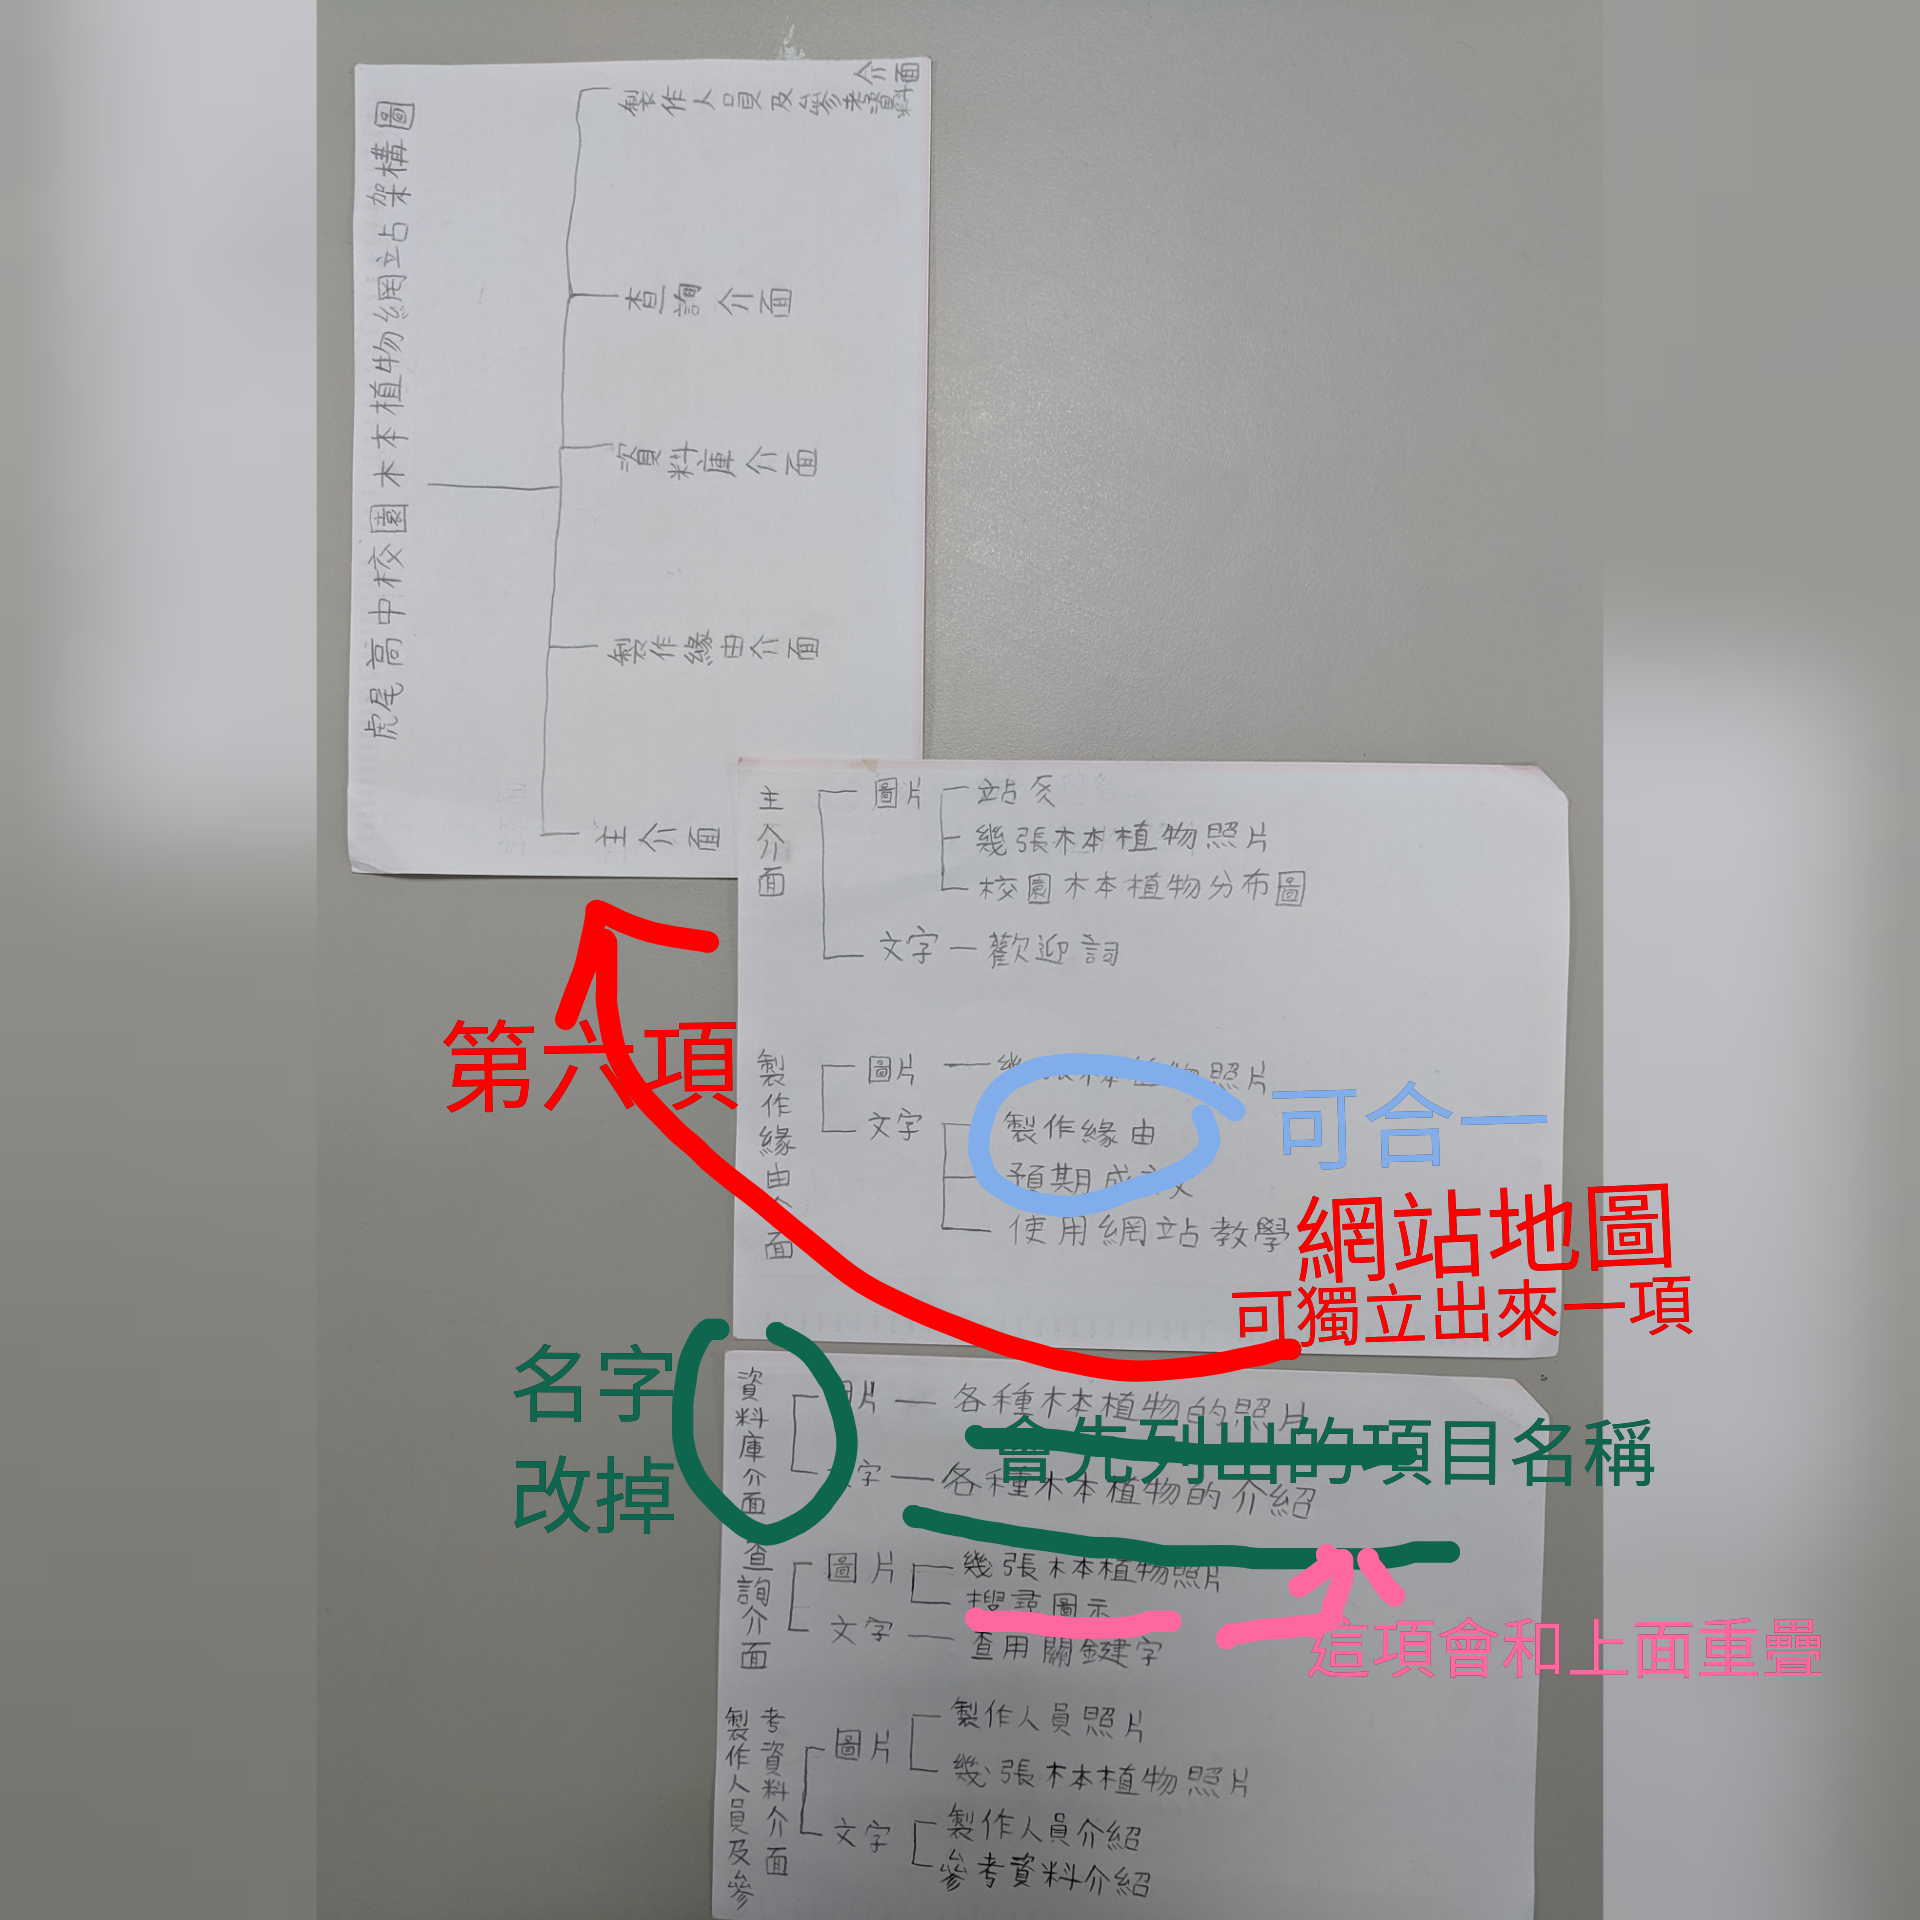 虎尾高中校園木本植物網站架構圖
製作人員及參考資料
介面
查詢介面
資料庫介面
製作緣由介面
主介面
主介面
圖片
站名
幾張木本植物照片
校園木本植物分布圖
文字
歡迎詞
第六項
製作緣由介面
圖片
幾張木本植物照片
文字
製作緣由
預期成效
使用網站教學
可合一
網站地圖
可獨立出來一項
名字
改掉
資料庫介面
圖片
各種木本植物的照片
會先列出的項目名稱
文字
各種木本植物的介紹
查詢介面
圖片
幾張木本植物照片
搜尋圖示
文字
查用關鍵字
這項會和上面重疊
製作人員及參
考資料介面
圖片
製作人員照片
幾張木本植物照片
文字
製作人員介紹
參考資料介紹